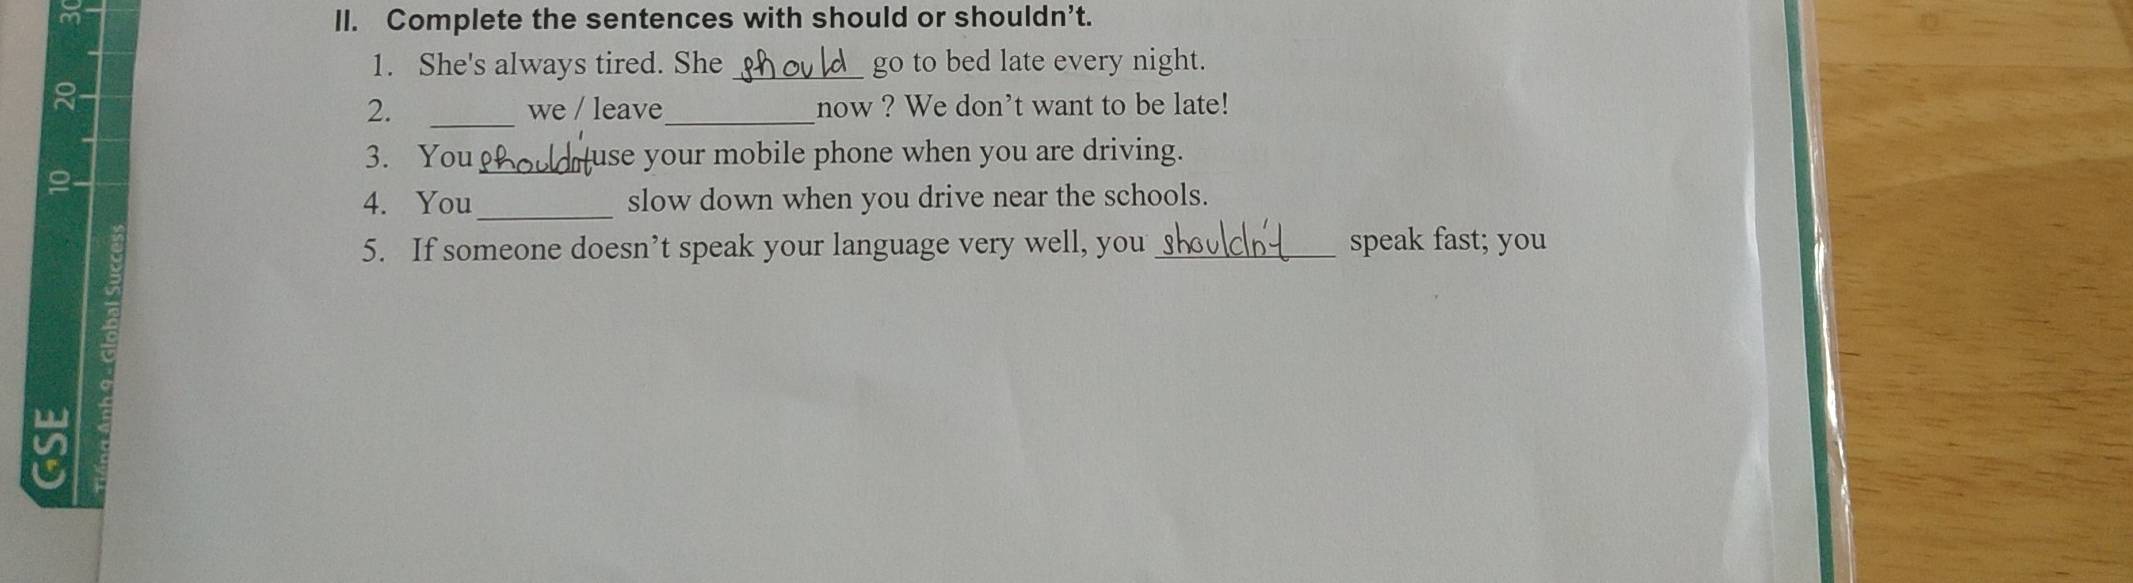 II. Complete the sentences with should or shouldn't.
1. She's always tired. She should go to bed late every night.
2. ______ we / leave__________now ? We don't want to be late!
3. You shouldn't use your mobile phone when you are driving.
4. You_________ slow down when you drive near the schools.
5. If someone doesn't speak your language very well, you shouldn't speak fast; you
30
20
10
GSE
Tiếng Anh 9 - Global Success